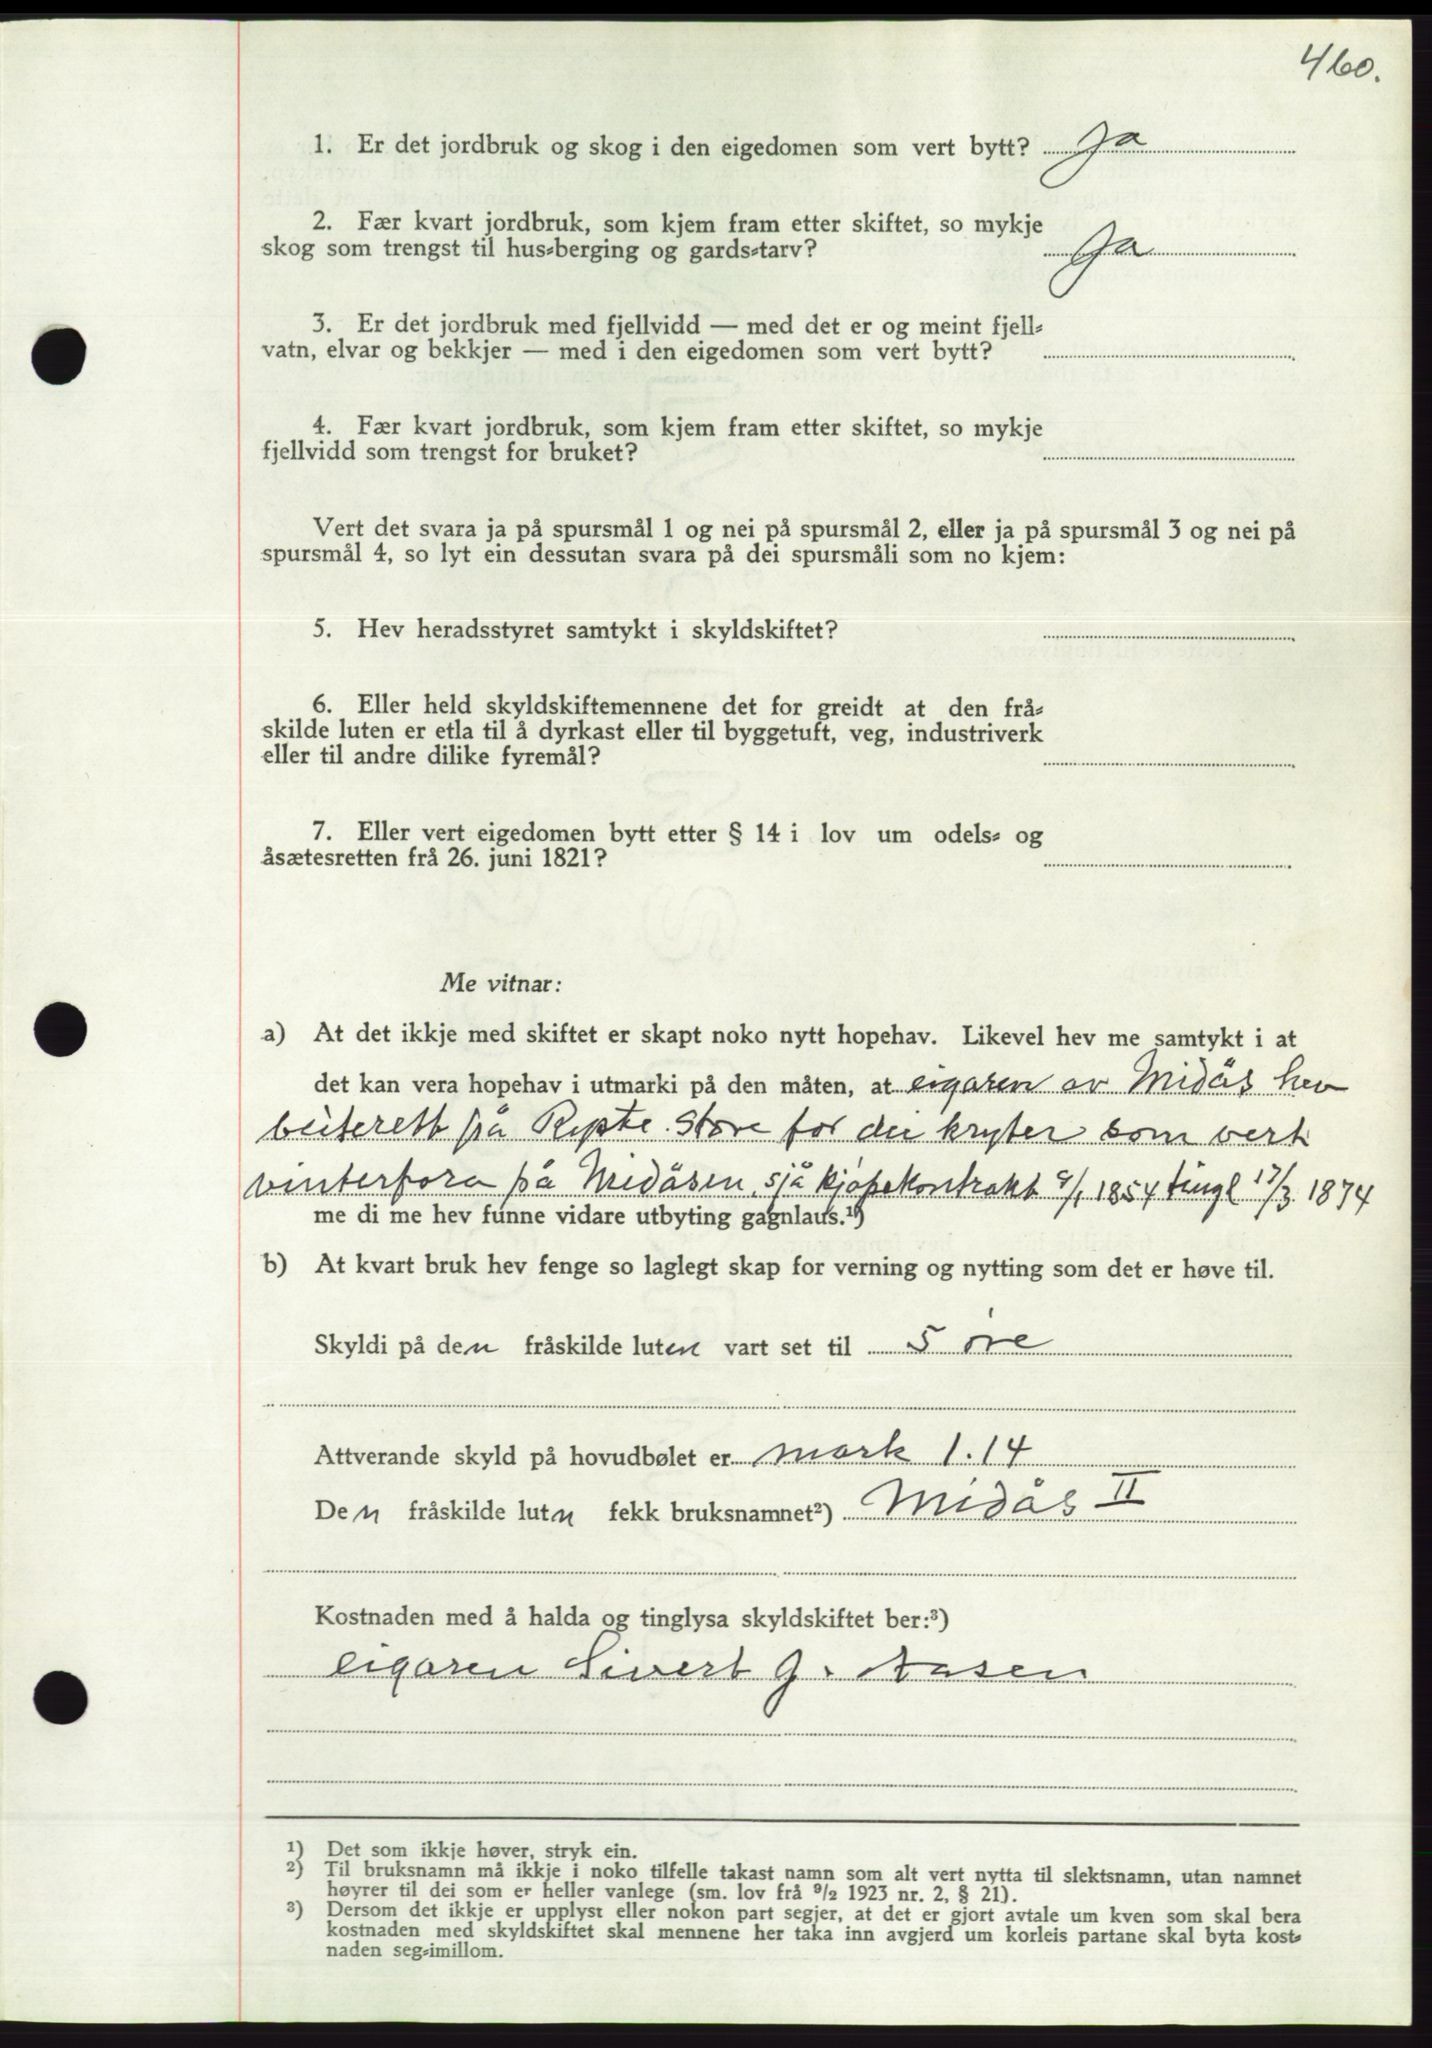 460.
1. Er det jordbruk og skog i den eigedomen som vert bytt? Ja
2. Fær kvart jordbruk, som kjem fram etter skiftet, so mykje
skog som trengst til hus-berging og gards-tarv? Ja
3. Er det jordbruk med fjellvidd — med det er og meint fjell-
vatn, elvar og bekkjer — med i den eigedomen som vert bytt?
4. Fær kvart jordbruk, som kjem fram etter skiftet, so mykje
fjellvidd som trengst for bruket?
Vert det svara ja på spursmål 1 og nei på spursmål 2, eller ja på spursmål 3 og nei på
spursmål 4, so lyt ein dessutan svara på dei spursmåli som no kjem:
5. Hev heradsstyret samtykt i skyldskiftet?
6. Eller held skyldskiftemennene det for greidt at den frå-
skilde luten er etla til å dyrkast eller til byggetuft, veg, industriverk
eller til andre dilike fyremål?
7. Eller vert eigedomen bytt etter § 14 i lov um odels- og
åsætesretten frå 26. juni 1821?
Me vitnar:
a) At det ikkje med skiftet er skapt noko nytt hopehav. Likevel hev me samtykt i at
det kan vera hopehav i utmarki på den måten, at eigaren av Midås hev
beiterett på Rypte. Store for dei kryter som vert
vinterfora på Midåsen, sjå kjøpekontrakt 9/1 1854 tingl 17/3 1874
me di me hev funne vidare utbyting gagnlaus.¹)
b) At kvart bruk hev fenge so laglegt skap for verning og nytting som det er høve til.
Skyldi på den fråskilde luten vart set til 5 øre
Attverande skyld på hovudbølet er mark 1.14
Den fråskilde lutn fekk bruksnamnet²) Midås II
Kostnaden med å halda og tinglysa skyldskiftet ber:³)
eigaren Sivert J. Aasen
¹) Det som ikkje høver, stryk ein.
²) Til bruksnamn må ikkje i noko tilfelle takast namn som alt vert nytta til slektsnamn, utan namnet
høyrer til dei som er heller vanlege (sm. lov frå 9/2 1923 nr. 2, § 21).
³) Dersom det ikkje er upplyst eller nokon part segjer, at det er gjort avtale um kven som skal bera
kostnaden med skyldskiftet skal mennene her taka inn avgjerd um korleis partane skal byta kost-
naden seg-imillom.